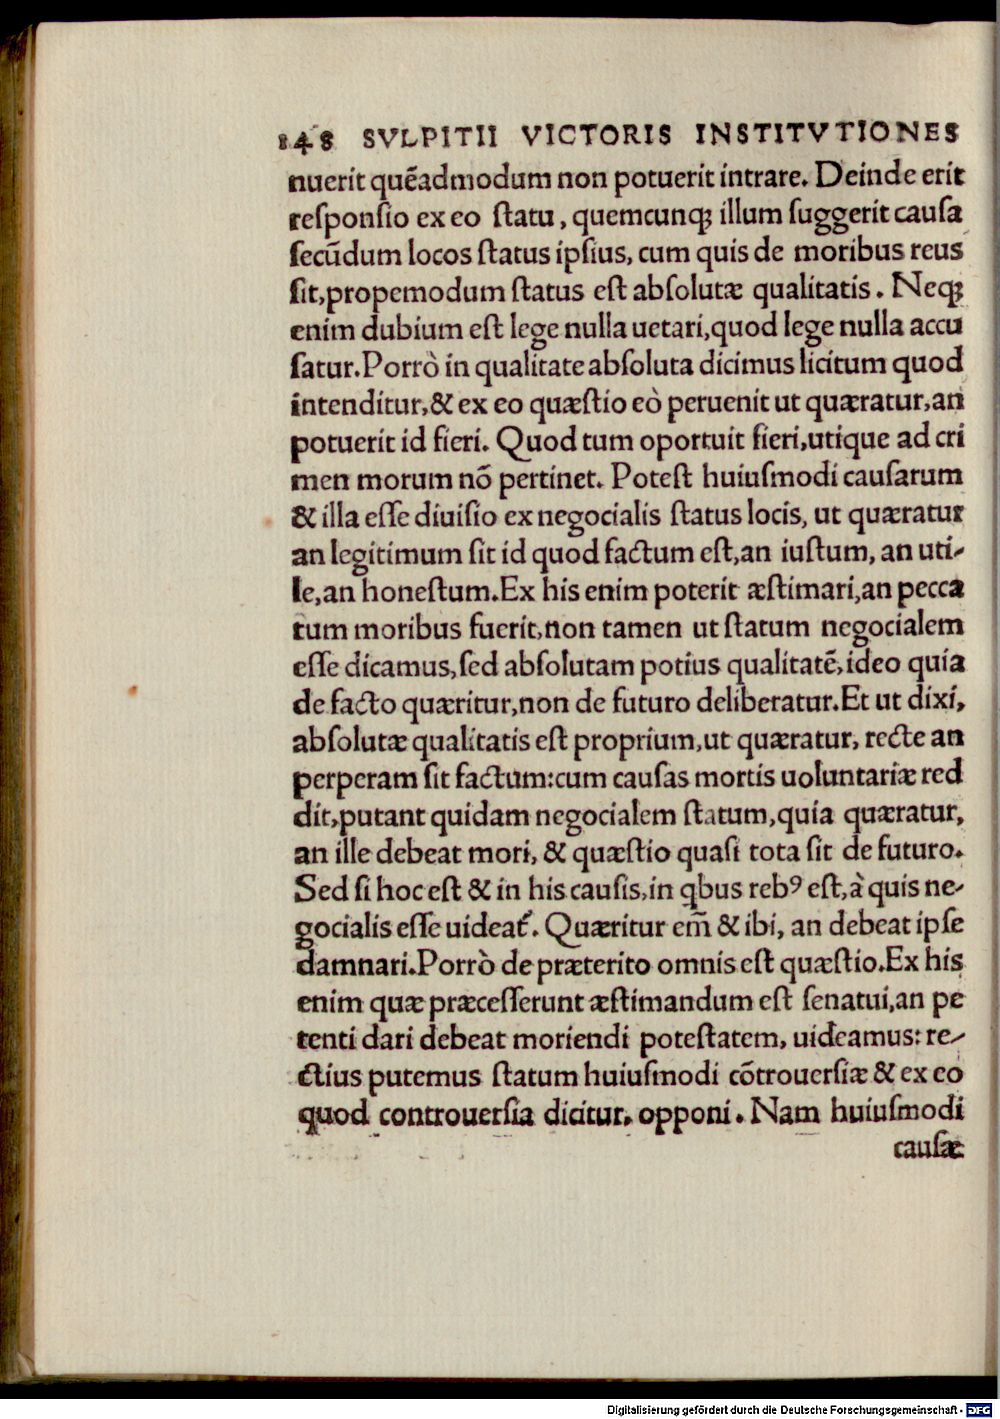 148 SVLPITII VICTORIS INSTITVTIONES
nuerit quẽadmodum non potuerit intrare. Deinde erit
responsio ex eo statu, quemcunqꝫ illum suggerit causa
secũdum locos status ipsius, cum quis de moribus reus
sit, propemodum status est absolutæ qualitatis. Neqꝫ
enim dubium est lege nulla uetari, quod lege nulla accu
satur. Porrò in qualitate absoluta dicimus licitum quod
intenditur, & ex eo quæstio eò peruenit ut quæratur, an
potuerit id fieri. Quod tum oportuit fieri, utique ad cri
men morum nõ pertinet. Potest huiusmodi causarum
& illa esse diuisio ex negocialis status locis, ut quæratur
an legitimum sit id quod factum est, an iustum, an uti-
le, an honestum. Ex his enim poterit æstimari, an pecca
tum moribus fuerit, non tamen ut statum negocialem
esse dicamus, sed absolutam potius qualitatẽ, ideo quia
de facto quæritur, non de futuro deliberatur. Et ut dixi,
absolutæ qualitatis est proprium, ut quæratur, recte an
perperam sit factum: cum causas mortis uoluntariæ red
dit, putant quidam negocialem statum, quia quæratur,
an ille debeat mori, & quæstio quasi tota sit de futuro.
Sed si hoc est & in his causis, in qbus rebꝰ est, à quis ne-
gocialis esse uideat᷑. Quæritur em̃ & ibi, an debeat ipse
damnari. Porrò de præterito omnis est quæstio. Ex his
enim quæ præcesserunt æstimandum est senatui, an pe
tenti dari debeat moriendi potestatem, uideamus: re-
ctius putemus statum huiusmodi cõtrouersiæ & ex eo
quod controuersia dicitur, opponi. Nam huiusmodi
causæ
Digitalisierung gefördert durch die Deutsche Forschungsgemeinschaft - DFG